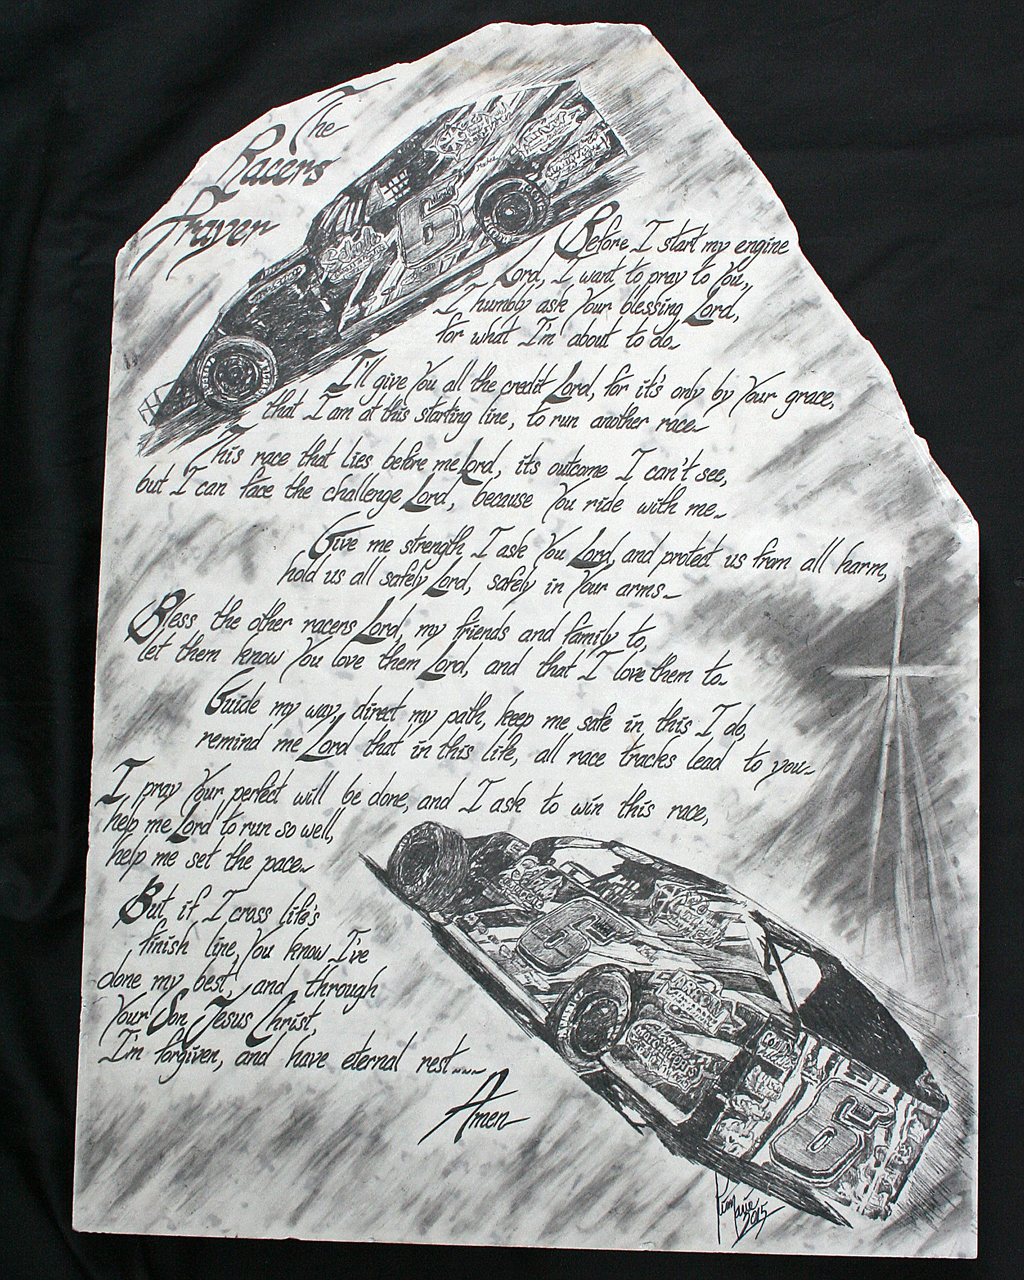 The
Racers
Prayer
Before I start my engine
Lord, I want to pray to You,
I humbly ask Your blessing Lord,
for what I'm about to do~
I'll give You all the credit Lord, for it's only by Your grace,
that I am at this starting line, to run another race~
This race that lies before me Lord, its outcome I can't see,
but I can face the challenge Lord, because You ride with me~
Give me strength I ask You Lord, and protect us from all harm,
hold us all safely Lord, safely in Your arms~
Bless the other racers Lord, my friends and family to,
let them know You love them Lord, and that I love them to~
Guide my way, direct my path, keep me safe in this I do,
remind me Lord that in this life, all race tracks lead to you~
I pray Your perfect will be done, and I ask to win this race,
help me Lord to run so well,
help me set the pace~
But if I cross life's
finish line, You know I've
done my best, and through
Your Son, Jesus Christ,
I'm forgiven, and have eternal rest~~~
Amen
6
6
ARROW
6
2015